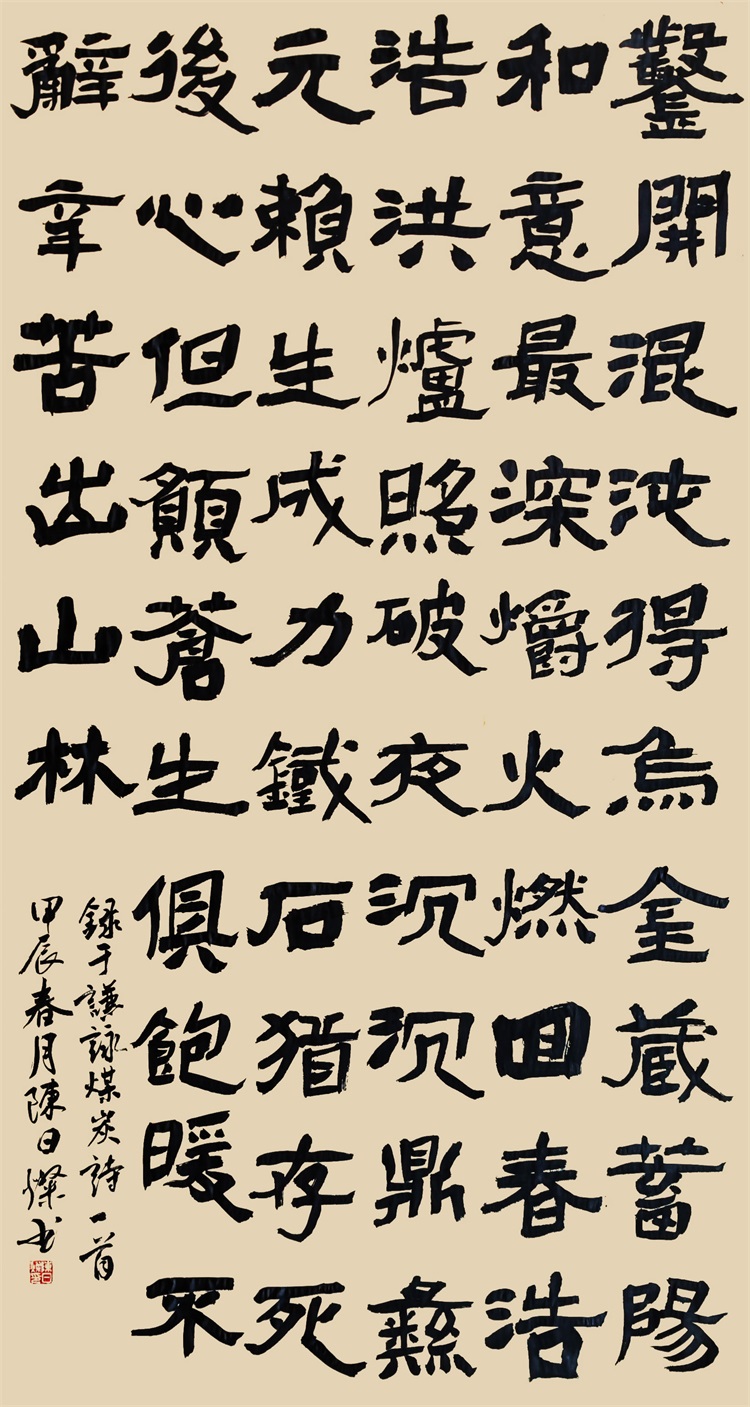 鑿開混沌得烏金蔵蓄陽
和意最深爝火燃回春浩
浩洪爐照破夜沉沉鼎彝
元賴生成力鐵石猶存死
後心但願蒼生俱飽暖不
辭辛苦出山林
録于謙詠煤炭詩一首
甲辰春月陳日燦书